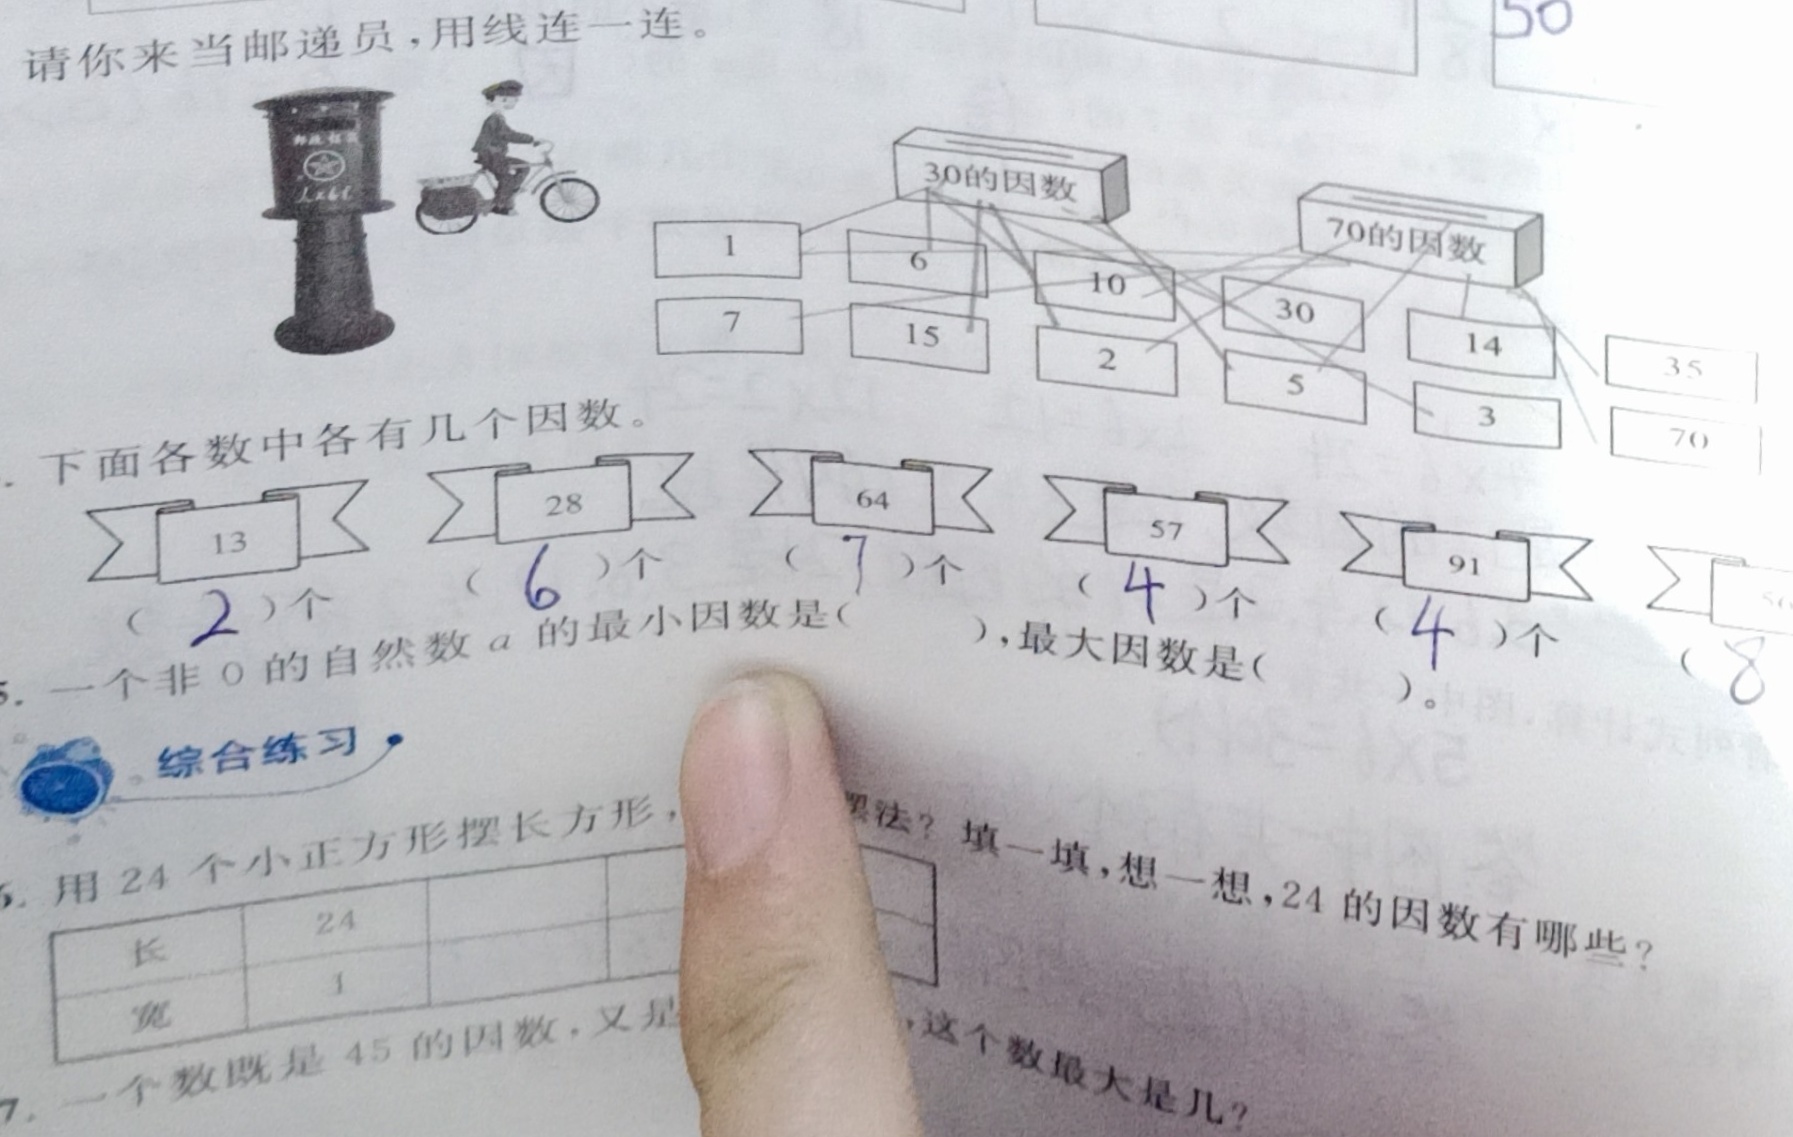 50
请你来当邮递员，用线连一连。
30的因数
70的因数
1 6 10 30 14 35
7 15 2 5 3 70
下面各数中各有几个因数。
13 28 64 57 91
( 2 )个 ( 6 )个 ( 7 )个 ( 4 )个 ( 4 )个 ( 8
5. 一个非0的自然数a的最小因数是( ),最大因数是( )。
综合练习
6. 用24个小正方形摆长方形, 摆法? 填一填,想一想,24的因数有哪些?
长 24
宽 1
7. 一个数既是45的因数,又是 ,这个数最大是几?